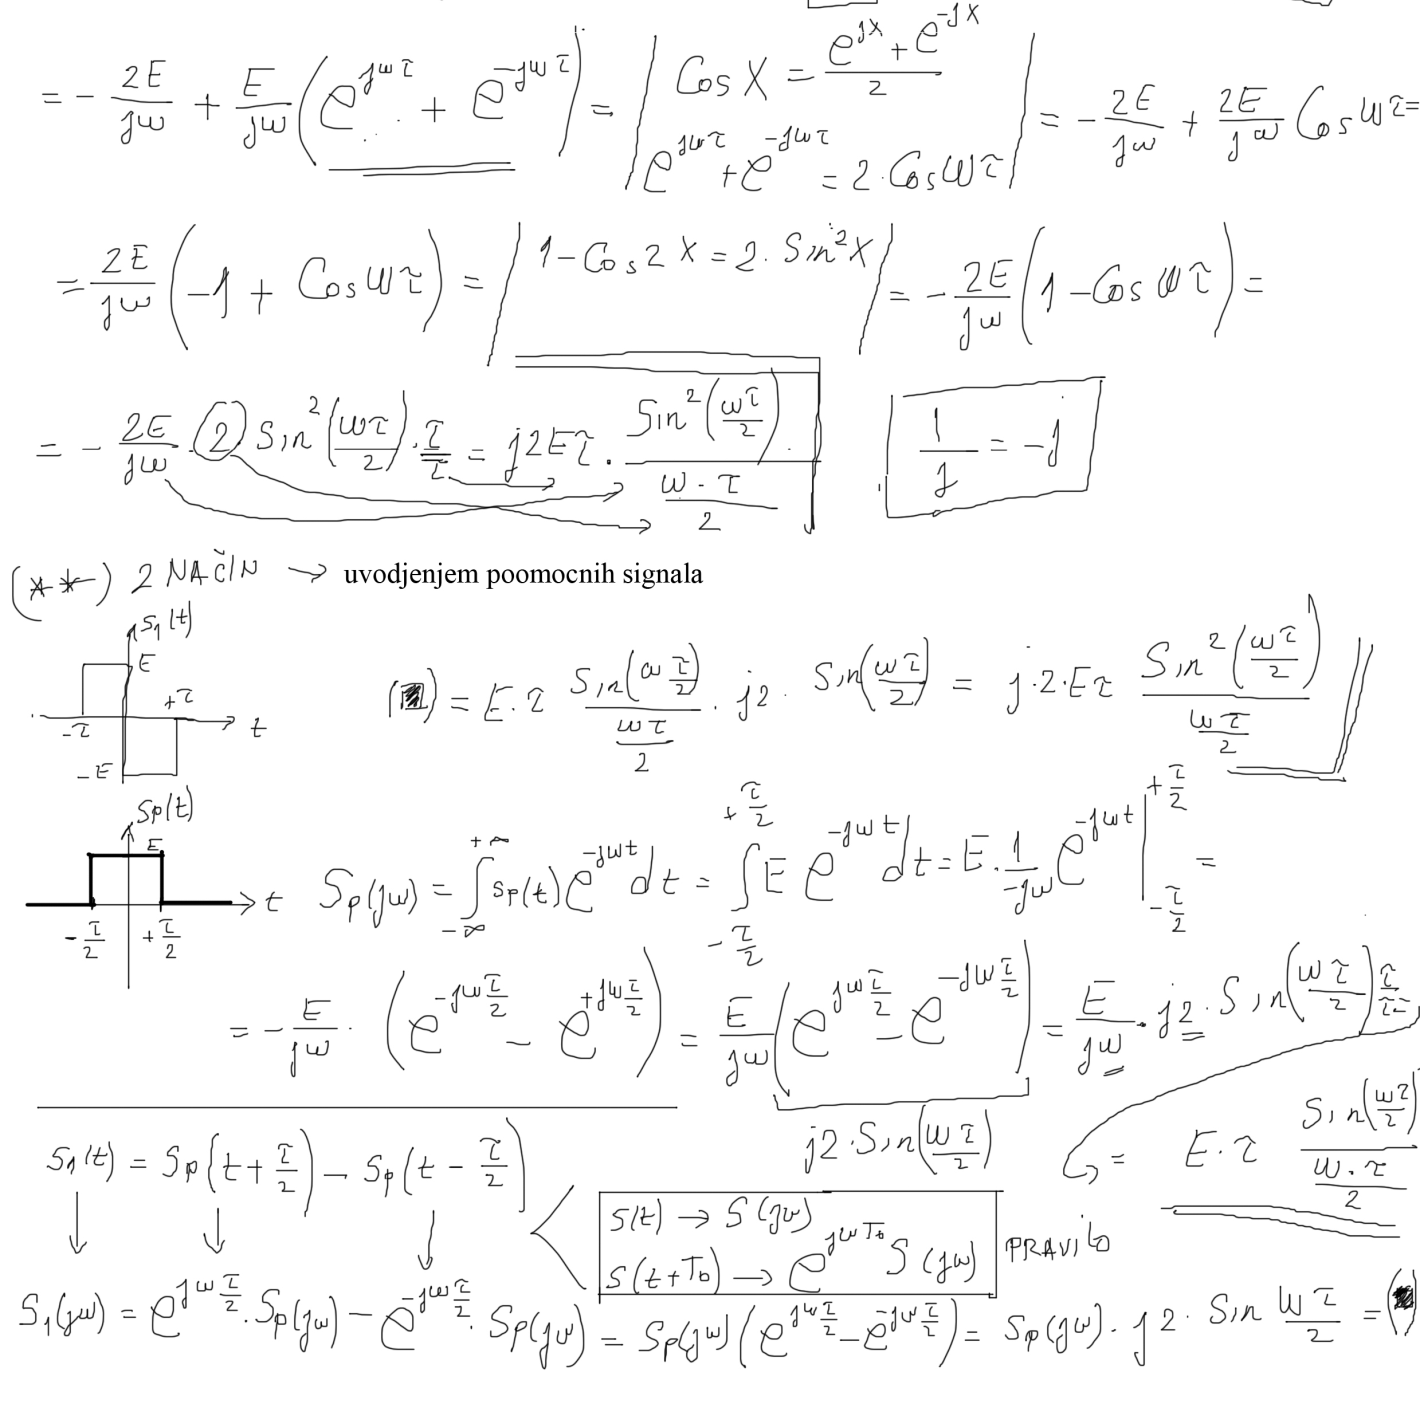 = - 2E/jω + E/jω (e^{jωτ} + e^{-jωτ}) = | Cos X = (e^{jX} + e^{-jX})/2   e^{jωτ} + e^{-jωτ} = 2·Cos ωτ | = - 2E/jω + 2E/jω Cos ωτ =
= 2E/jω (-1 + Cos ωτ) = | 1 - Cos 2X = 2·Sin²X | = - 2E/jω (1 - Cos ωτ) =
= - 2E/jω · 2 Sin²(ωτ/2) · τ/τ = j2Eτ · Sin²(ωτ/2) / (ω·τ/2)
1/j = -j
(**) 2 NAČIN → uvodjenjem poomocnih signala
S₁(t)
E
+τ
-τ
t
-E
(■) = E·τ Sin(ωτ/2) / (ωτ/2) · j2· Sin(ωτ/2) = j·2·Eτ Sin²(ωτ/2) / (ωτ/2)
Sp(t)
E
t
-τ/2 +τ/2
Sp(jω) = ∫_{-∞}^{+∞} sp(t) e^{-jωt} dt = ∫_{-τ/2}^{+τ/2} E e^{-jωt} dt = E · 1/-jω e^{-jωt} |_{-τ/2}^{+τ/2} =
= - E/jω · (e^{-jωτ/2} - e^{+jωτ/2}) = E/jω (e^{jωτ/2} - e^{-jωτ/2}) = E/jω · j2 · Sin(ωτ/2) τ/τ =
j2·Sin(ωτ/2)
= E·τ Sin(ωτ/2) / (ω·τ/2)
S₁(t) = Sp(t + τ/2) - Sp(t - τ/2)
S(t) → S(jω)
S(t+T₀) → e^{jωT₀} S(jω)
PRAVILO
S₁(jω) = e^{jωτ/2} · Sp(jω) - e^{-jωτ/2} · Sp(jω) = Sp(jω) (e^{jωτ/2} - e^{-jωτ/2}) = Sp(jω) · j2 · Sin ωτ/2 = (■)